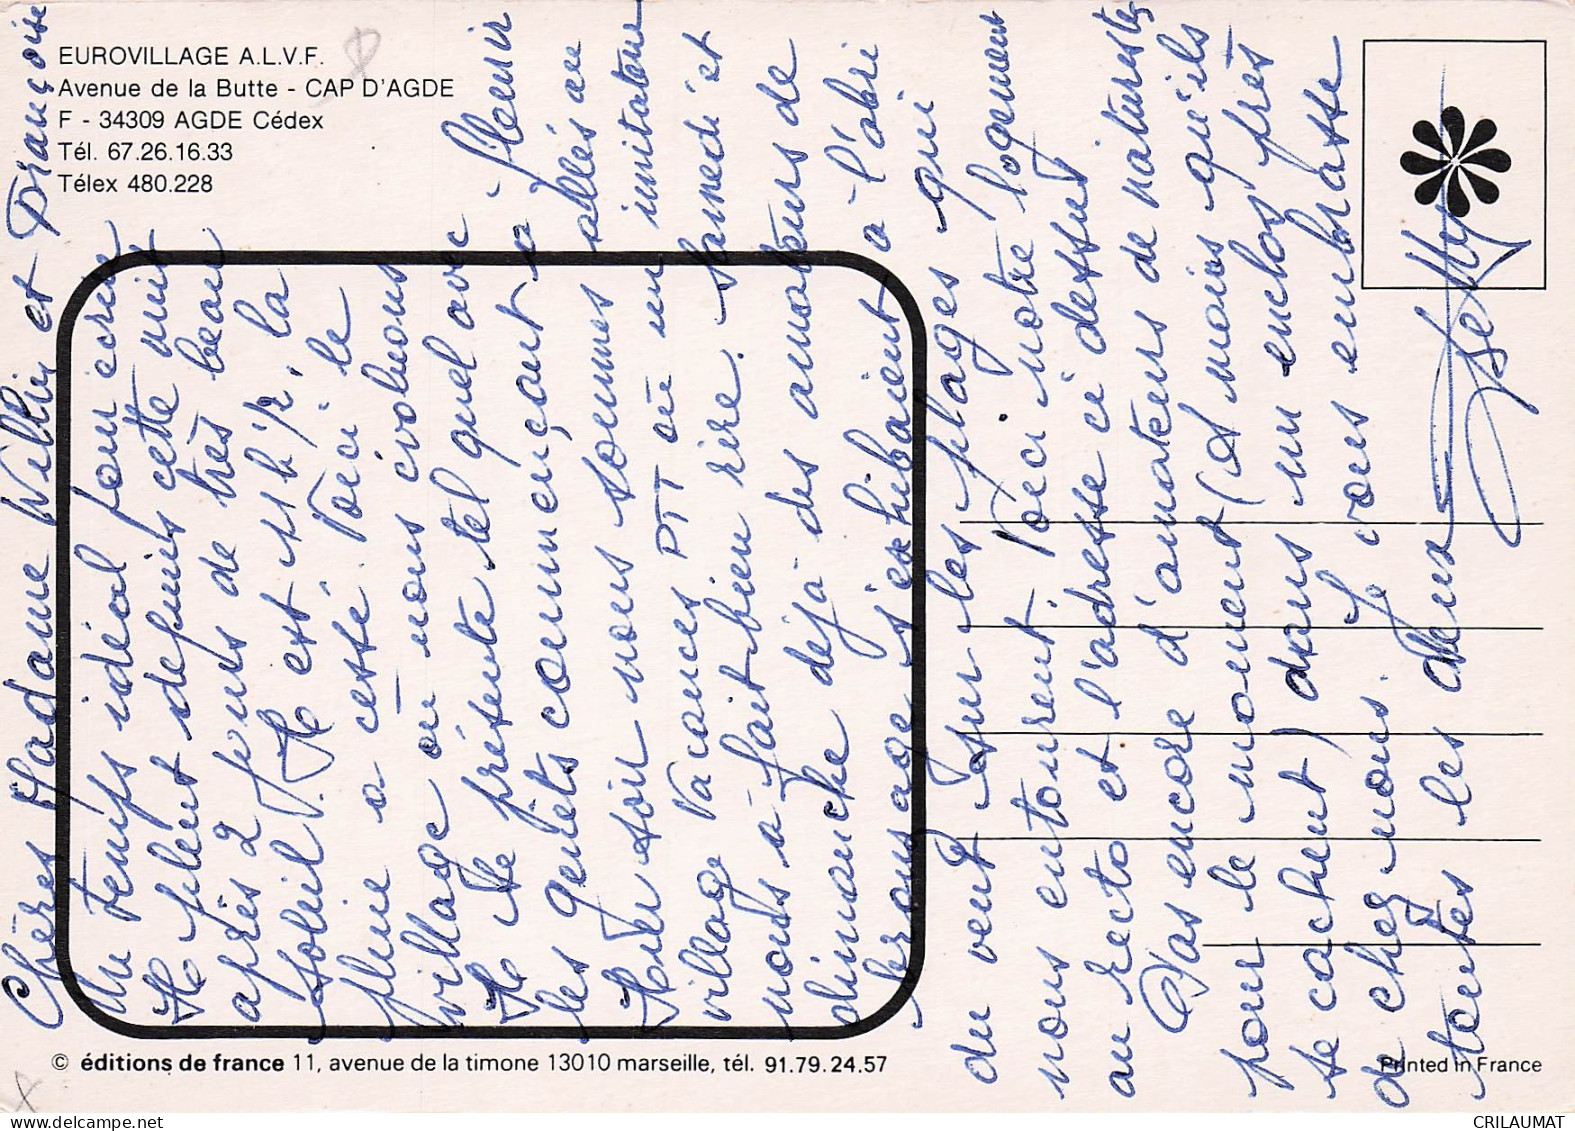 EUROVILLAGE A.L.V.F.
Avenue de la Butte - CAP D'AGDE
F - 34309 AGDE Cédex
Tél. 67.26.16.33
Télex 480.228
Chères Madame Willin et Françoise
Un temps idéal pour écrire
Il pleut depuis cette nuit
après 2 jours de très beau
soleil. Il est 11h1/2, la
pluie a cessé. Voici le
village où nous évoluons
Il se présente tel quel avec
les genêts commençant à fleurir
Hier soir nous sommes allés au
village Vacances PTT où un imitateur
nous a fait bien rire. Samedi et
dimanche déjà des amateurs de
bronzage s'exhibaient à l'abri
du vent sur les plages qui
nous entourent. Voici notre logement
au recto et l'adresse ci dessus
Pas encore d'amateurs de naturistes
pour le moment (à moins qu'ils
se cachent) dans un enclos près
de chez nous. Je vous embrasse
toutes les deux
Betty
© éditions de france 11, avenue de la timone 13010 marseille, tél. 91.79.24.57
Printed in France
CRILAUMAT